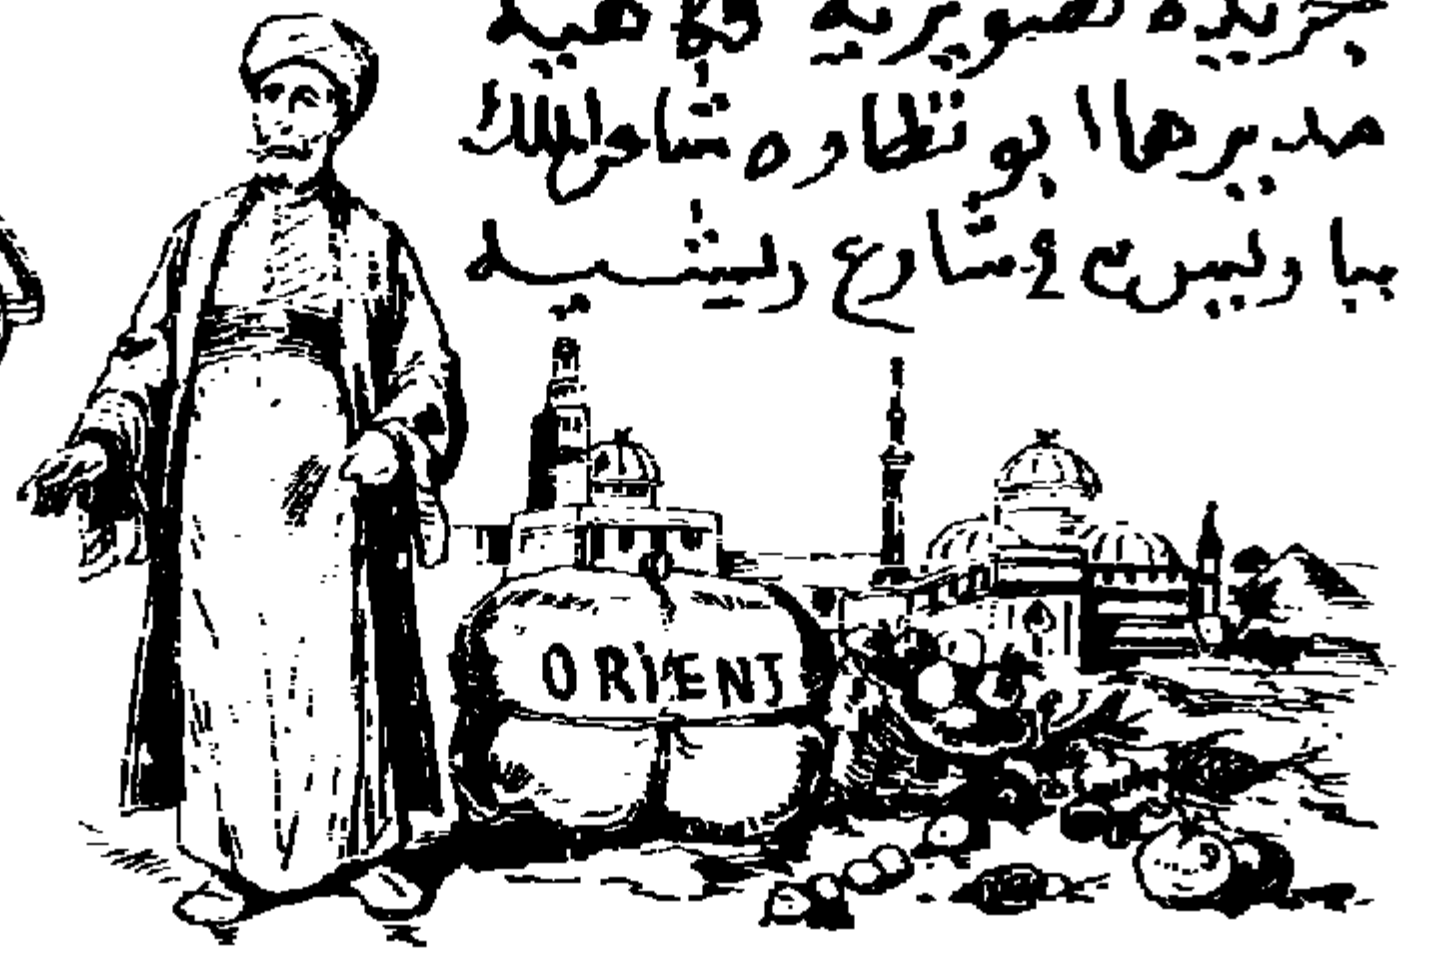 جريده تصويريه فكاهيه
مديرها ابو نظاره شاعر الملك
بباريس ٤ شارع ريشيه
ORiENT